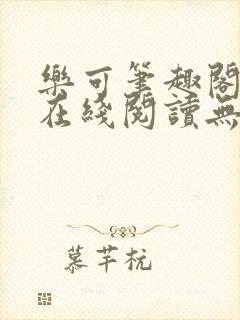 樂可筆趣閣
在綫閱讀無
慕芊杬